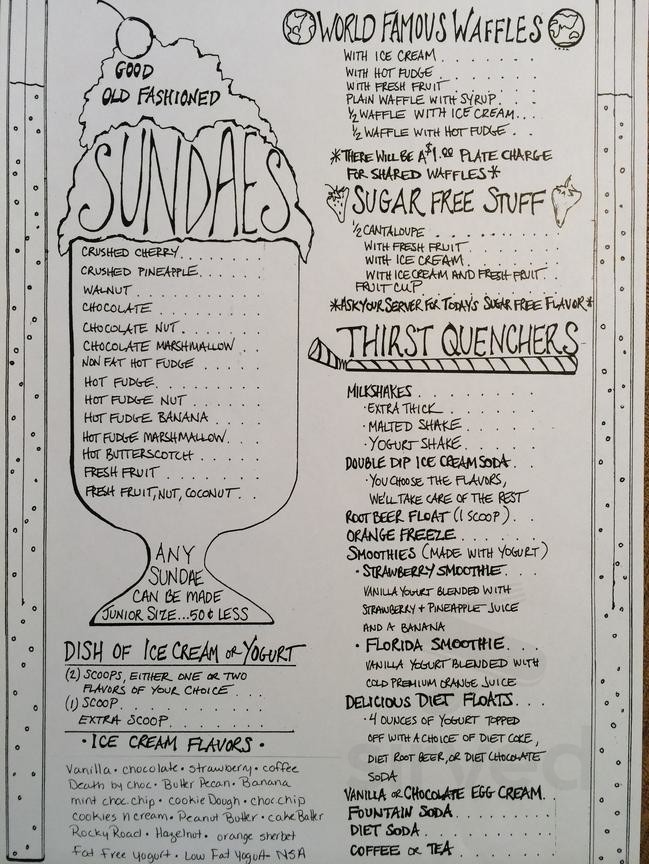 GOOD
OLD FASHIONED
SUNDAES
CRUSHED CHERRY
CRUSHED PINEAPPLE
WALNUT
CHOCOLATE
CHOCOLATE NUT
CHOCOLATE MARSHMALLOW
NON FAT HOT FUDGE
HOT FUDGE
HOT FUDGE NUT
HOT FUDGE BANANA
HOT FUDGE MARSHMALLOW
HOT BUTTERSCOTCH
FRESH FRUIT
FRESH FRUIT, NUT, COCONUT
ANY
SUNDAE
CAN BE MADE
JUNIOR SIZE...50¢ LESS
DISH OF ICE CREAM OR YOGURT
(2) SCOOPS, EITHER ONE OR TWO
FLAVORS OF YOUR CHOICE
(1) SCOOP
EXTRA SCOOP
• ICE CREAM FLAVORS •
Vanilla • chocolate • strawberry • coffee
Death by choc • Butter Pecan • Banana
mint choc chip • cookie Dough • choc chip
cookies n cream • Peanut Butter • cake Batter
Rocky Road • Hazelnut • orange sherbet
Fat Free Yogurt • Low Fat Yogurt NSA
WORLD FAMOUS WAFFLES
WITH ICE CREAM
WITH HOT FUDGE
WITH FRESH FRUIT
PLAIN WAFFLE WITH SYRUP
½ WAFFLE WITH ICE CREAM
½ WAFFLE WITH HOT FUDGE
*THERE WILL BE A $1.00 PLATE CHARGE
FOR SHARED WAFFLES*
SUGAR FREE STUFF
½ CANTALOUPE
WITH FRESH FRUIT
WITH ICE CREAM
WITH ICE CREAM AND FRESH FRUIT
FRUIT CUP
*ASK YOUR SERVER FOR TODAY'S SUGAR FREE FLAVOR*
THIRST QUENCHERS
MILKSHAKES
• EXTRA THICK
• MALTED SHAKE
• YOGURT SHAKE
DOUBLE DIP ICE CREAM SODA
• YOU CHOOSE THE FLAVORS,
WE'LL TAKE CARE OF THE REST
ROOT BEER FLOAT (1 SCOOP)
ORANGE FREEZE
SMOOTHIES (MADE WITH YOGURT)
• STRAWBERRY SMOOTHIE
VANILLA YOGURT BLENDED WITH
STRAWBERRY + PINEAPPLE JUICE
AND A BANANA
• FLORIDA SMOOTHIE
VANILLA YOGURT BLENDED WITH
COLD PREMIUM ORANGE JUICE
DELICIOUS DIET FLOATS
• 4 OUNCES OF YOGURT TOPPED
OFF WITH A CHOICE OF DIET COKE,
DIET ROOT BEER, OR DIET CHOCOLATE
SODA
VANILLA OR CHOCOLATE EGG CREAM
FOUNTAIN SODA
DIET SODA
COFFEE OR TEA
sirved